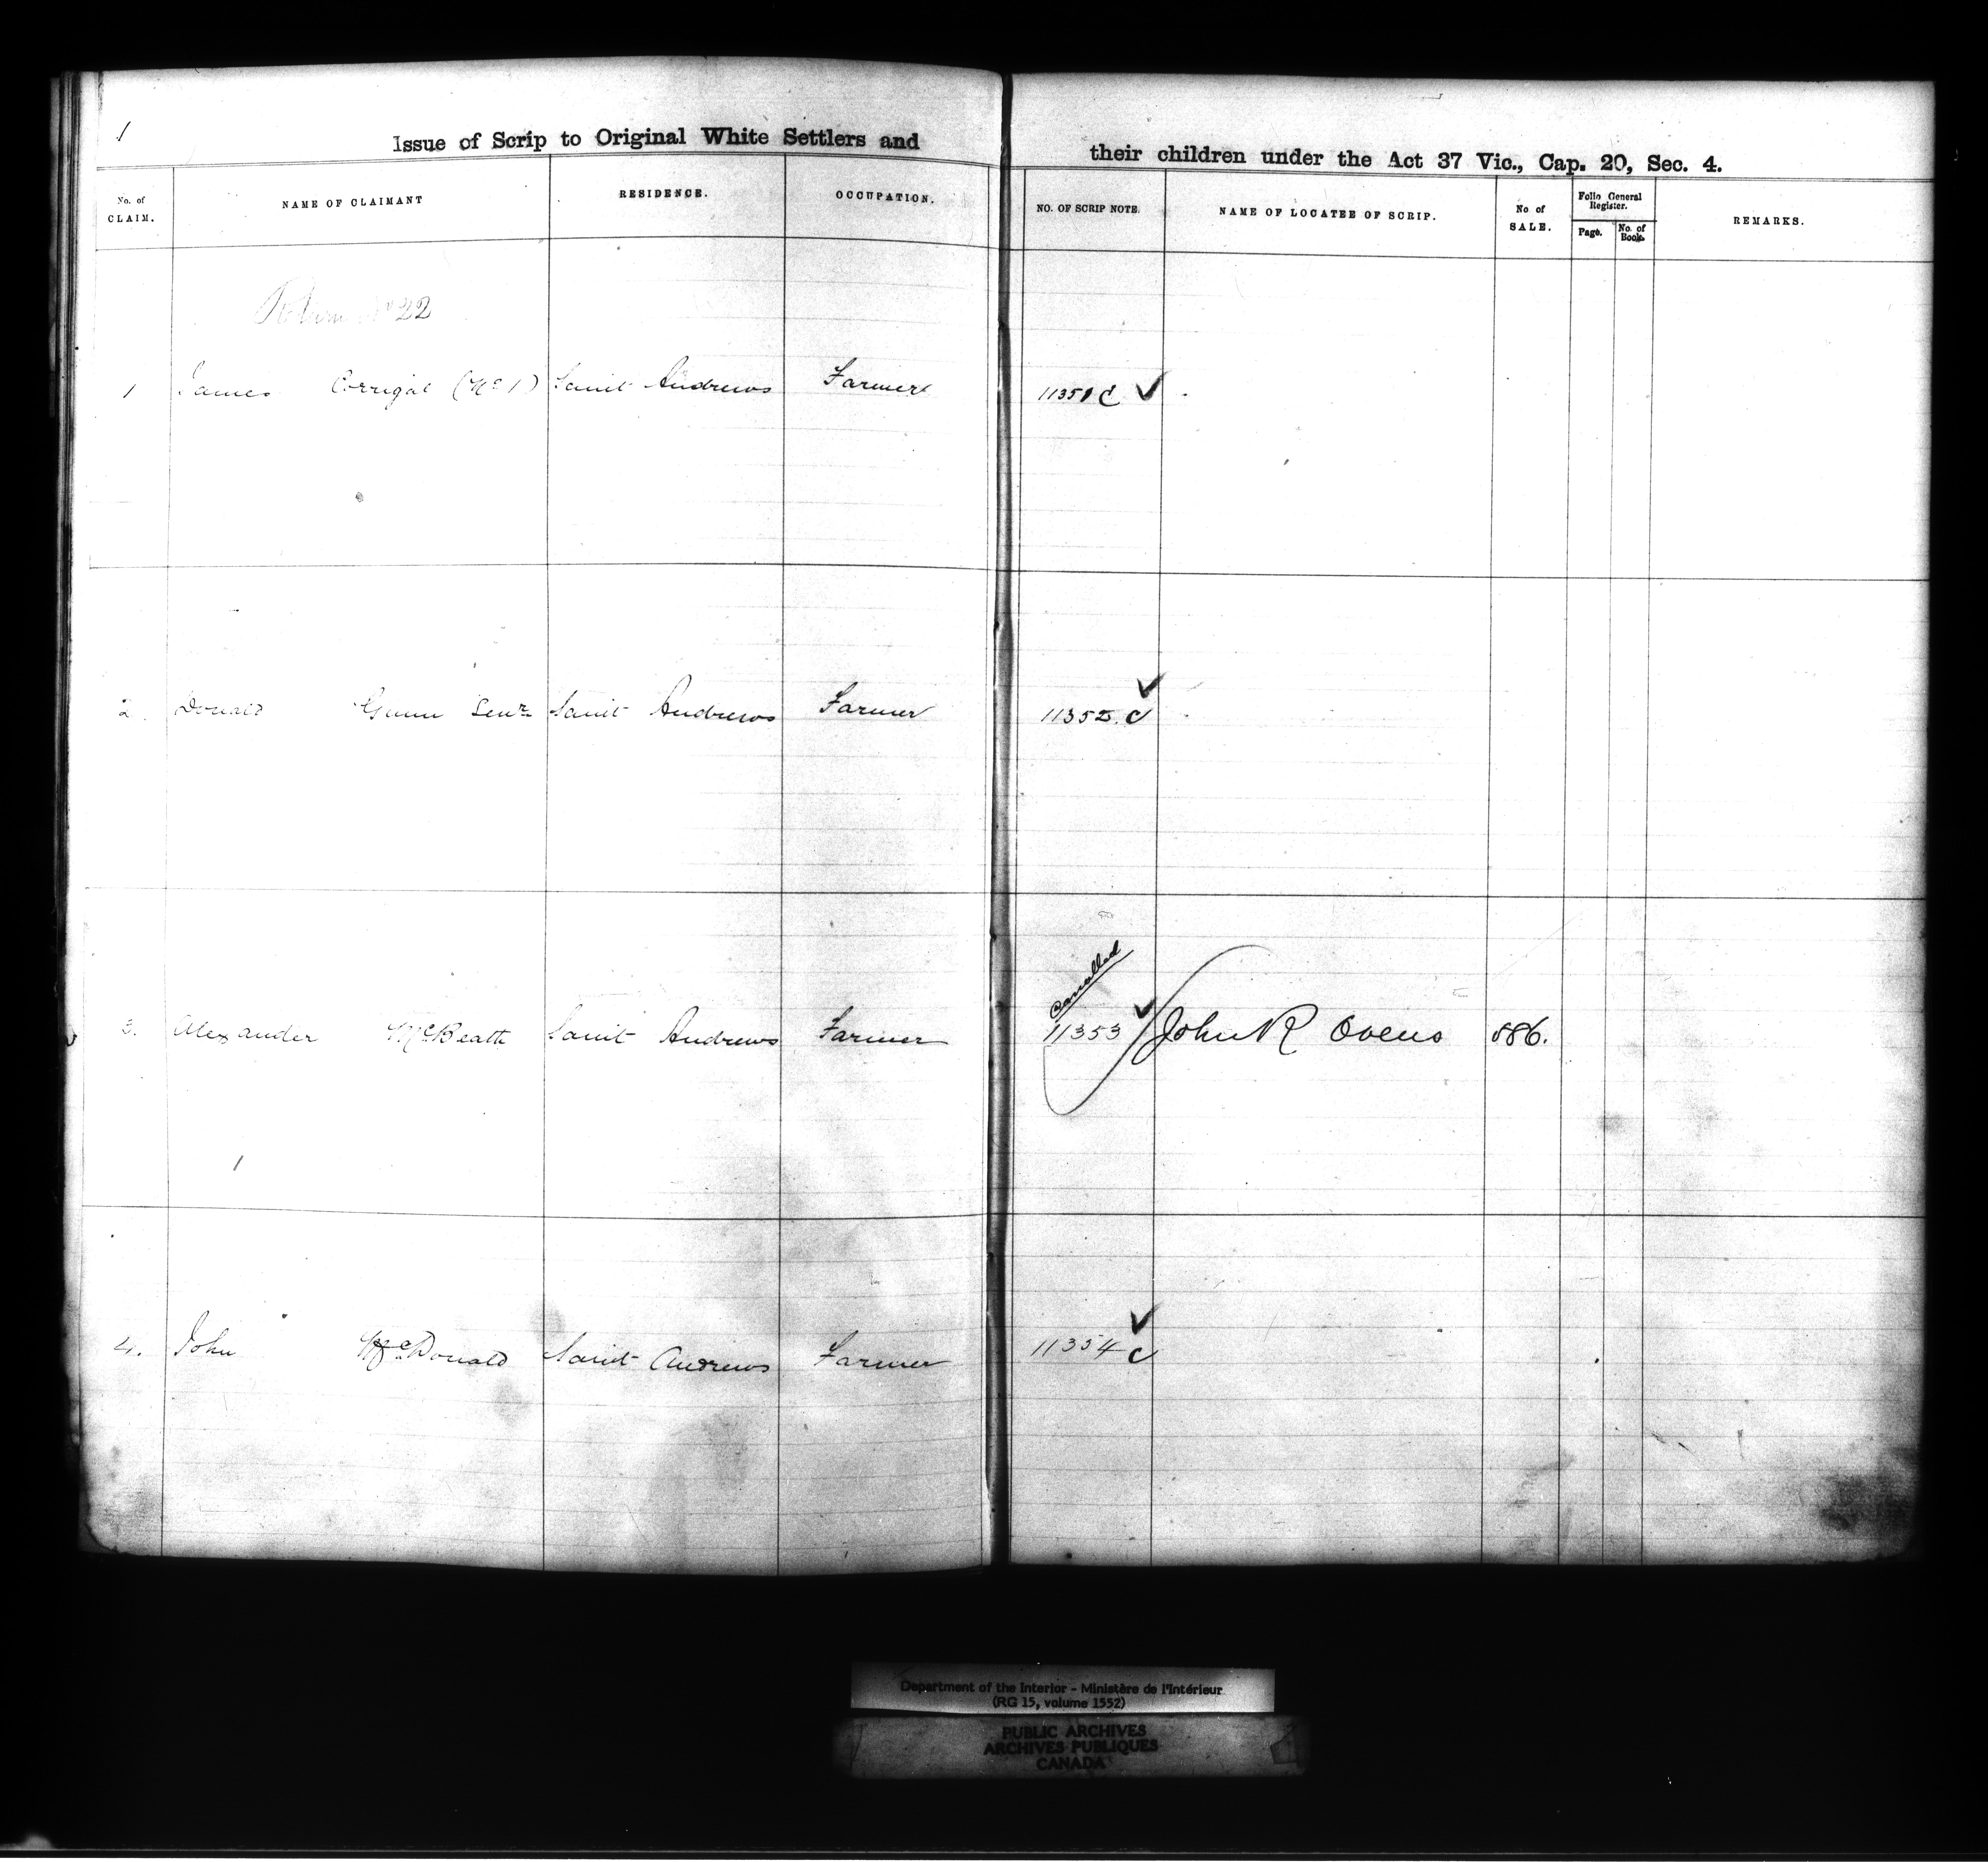 1
Issue of Scrip to Original White Settlers and their children under the Act 37 Vic., Cap. 20, Sec. 4.
No. of CLAIM. NAME OF CLAIMANT RESIDENCE. OCCUPATION. NO. OF SCRIP NOTE. NAME OF LOCATEE OF SCRIP. No of SALE. Folio General Register. Page. No. of Book. REMARKS.
Return No 22
1 James Corrigal (No 1) Saint Andrews Farmer 11351 C ✓
2. Donald Gunn Senr Saint Andrews Farmer 11352. C ✓
Cancelled
3. Alexander McBeath Saint Andrews Farmer 11353 ✓ John R Ovens 886.
1
4. John McDonald Saint Andrews Farmer 11354 C ✓
Department of the Interior - Ministère de l'Intérieur
(RG 15, volume 1552)
PUBLIC ARCHIVES
ARCHIVES PUBLIQUES
CANADA